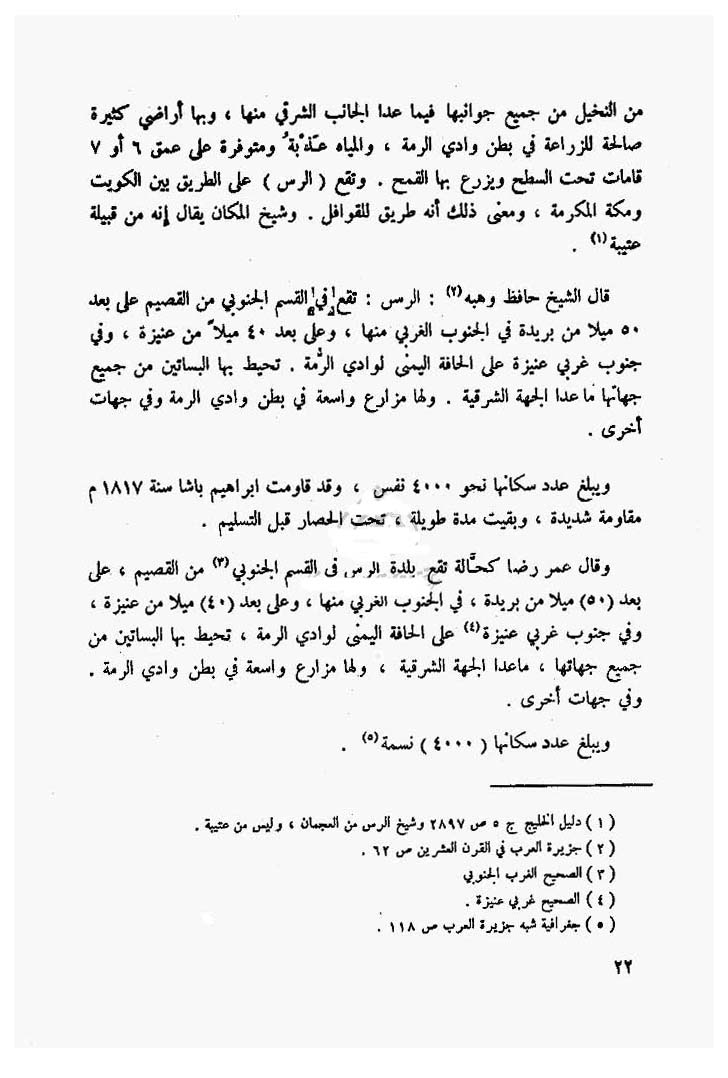 من النخيل من جميع جوانبها فيما عدا الجانب الشرقي منها ، وبها أراضي كثيرة
صالحة للزراعة في بطن وادي الرمة ، والمياه عَذْبة ُ ومتوفرة على عمق ٦ أو ٧
قامات تحت السطح ويزرع بها القمح . وتقع ( الرس ) على الطريق بين الكويت
ومكة المكرمة ، ومعنى ذلك أنه طريق للقوافل . وشيخ المكان يقال إنه من قبيلة
عتيبة (١) .
قال الشيخ حافظ وهبه (٢) : الرس : تقع في القسم الجنوبي من القصيم على بعد
٥٠ ميلا من بريدة في الجنوب الغربي منها ، وعلى بعد ٤٠ ميلاً من عنيزة ، وفي
جنوب غربي عنيزة على الحافة اليمنى لوادي الرُّمة . تحيط بها البساتين من جميع
جهاتها ما عدا الجهة الشرقية . ولها مزارع واسعة في بطن وادي الرمة وفي جهات
أخرى .
ويبلغ عدد سكانها نحو ٤٠٠٠ نفس ، وقد قاومت ابراهيم باشا سنة ١٨١٧ م
مقاومة شديدة ، وبقيت مدة طويلة ، تحت الحصار قبل التسليم .
وقال عمر رضا كحَّالة تقع بلدة الرس فى القسم الجنوبي (٣) من القصيم ، على
بعد (٥٠) ميلا من بريدة ، في الجنوب الغربي منها ، وعلى بعد (٤٠) ميلا من عنيزة ،
وفي جنوب غربي عنيزة (٤) على الحافة اليمنى لوادي الرمة ، تحيط بها البساتين من
جميع جهاتها ، ماعدا الجهة الشرقية ، ولها مزارع واسعة في بطن وادي الرمة .
وفي جهات أخرى .
ويبلغ عدد سكانها ( ٤٠٠٠ ) نسمة (٥) .
( ١ ) دليل الخليج ج ٥ ص ٢٨٩٧ وشيخ الرس من العجمان ، وليس من عتيبة .
( ٢ ) جزيرة العرب في القرن العشرين ص ٦٢ .
( ٣ ) الصحيح الغرب الجنوبي
( ٤ ) الصحيح غربي عنيزة .
( ٥ ) جغرافية شبه جزيرة العرب ص ١١٨ .
٢٢